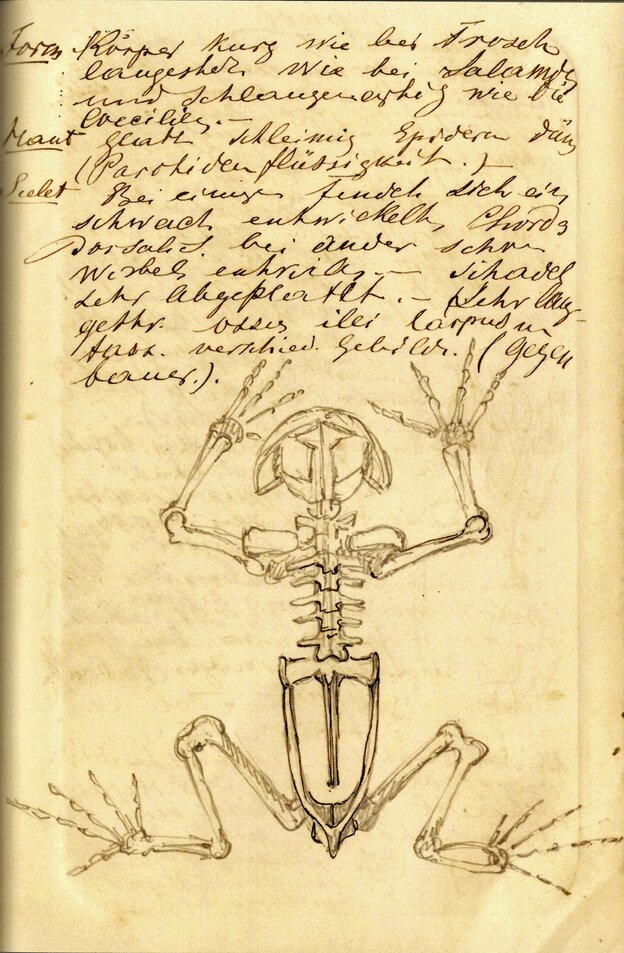 Form Körper kurz wie bei Frosch
langestr. wie bei Salamdr
und schlangenartig wie die
Coecilien. —
Haut glatt schleimig Epiderm dün
(Parotidenflüssigkeit.) —
Scelet Bei einigen findet sich ein
schwach entwickelt Chorda
Dorsalis. bei ander schon
Wirbel entwik. — Schädel
sehr abgeplattt. — (Sehr lang
ossa ilii Carpus u
tars. verschied. Gebilde. (Gegen
bauer.).